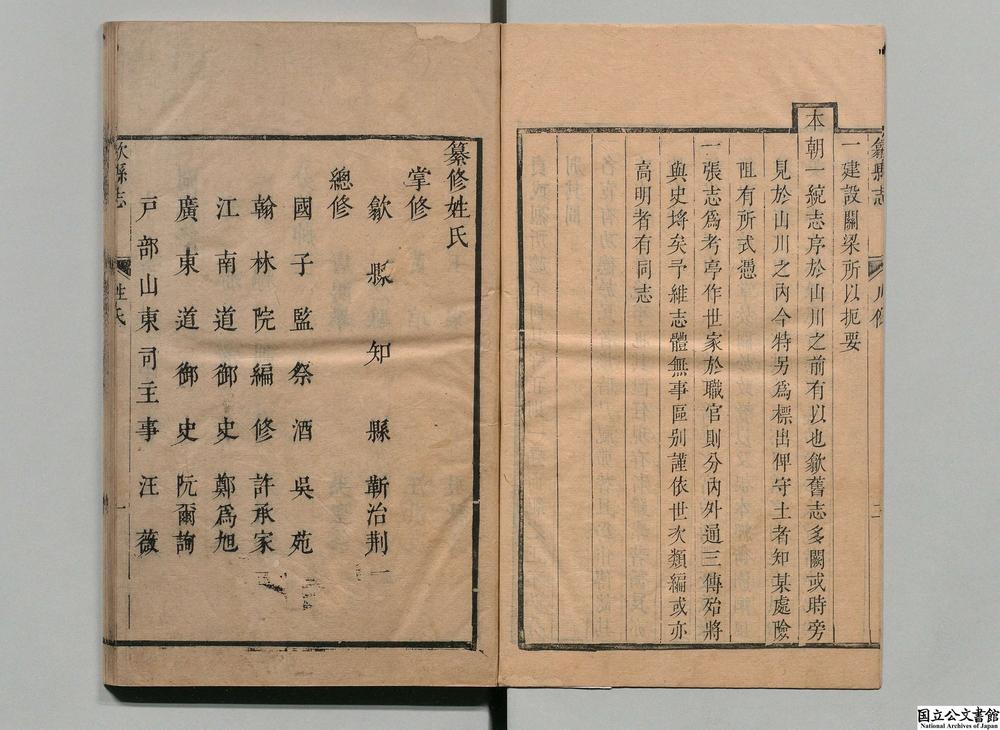 歙縣志
凡例
三
一建設關梁所以扼要
本朝一統志序於山川之前有以也歙舊志多闕或時旁
見於山川之內今特另爲標出俾守土者知某處險
阻有所式憑
一張志爲考亭作世家於職官則分內外通三傳殆將
與史埒矣予維志體無事區别謹依世次類編或亦
高明者有同志
纂修姓氏
掌修
歙縣知縣靳治荆
總修
國子監祭酒吳苑
翰林院編修許承家
江南道御史鄭爲旭
廣東道御史阮爾詢
戶部山東司主事汪薇
歙縣志
姓氏
一
国立公文書館
National Archives of Japan